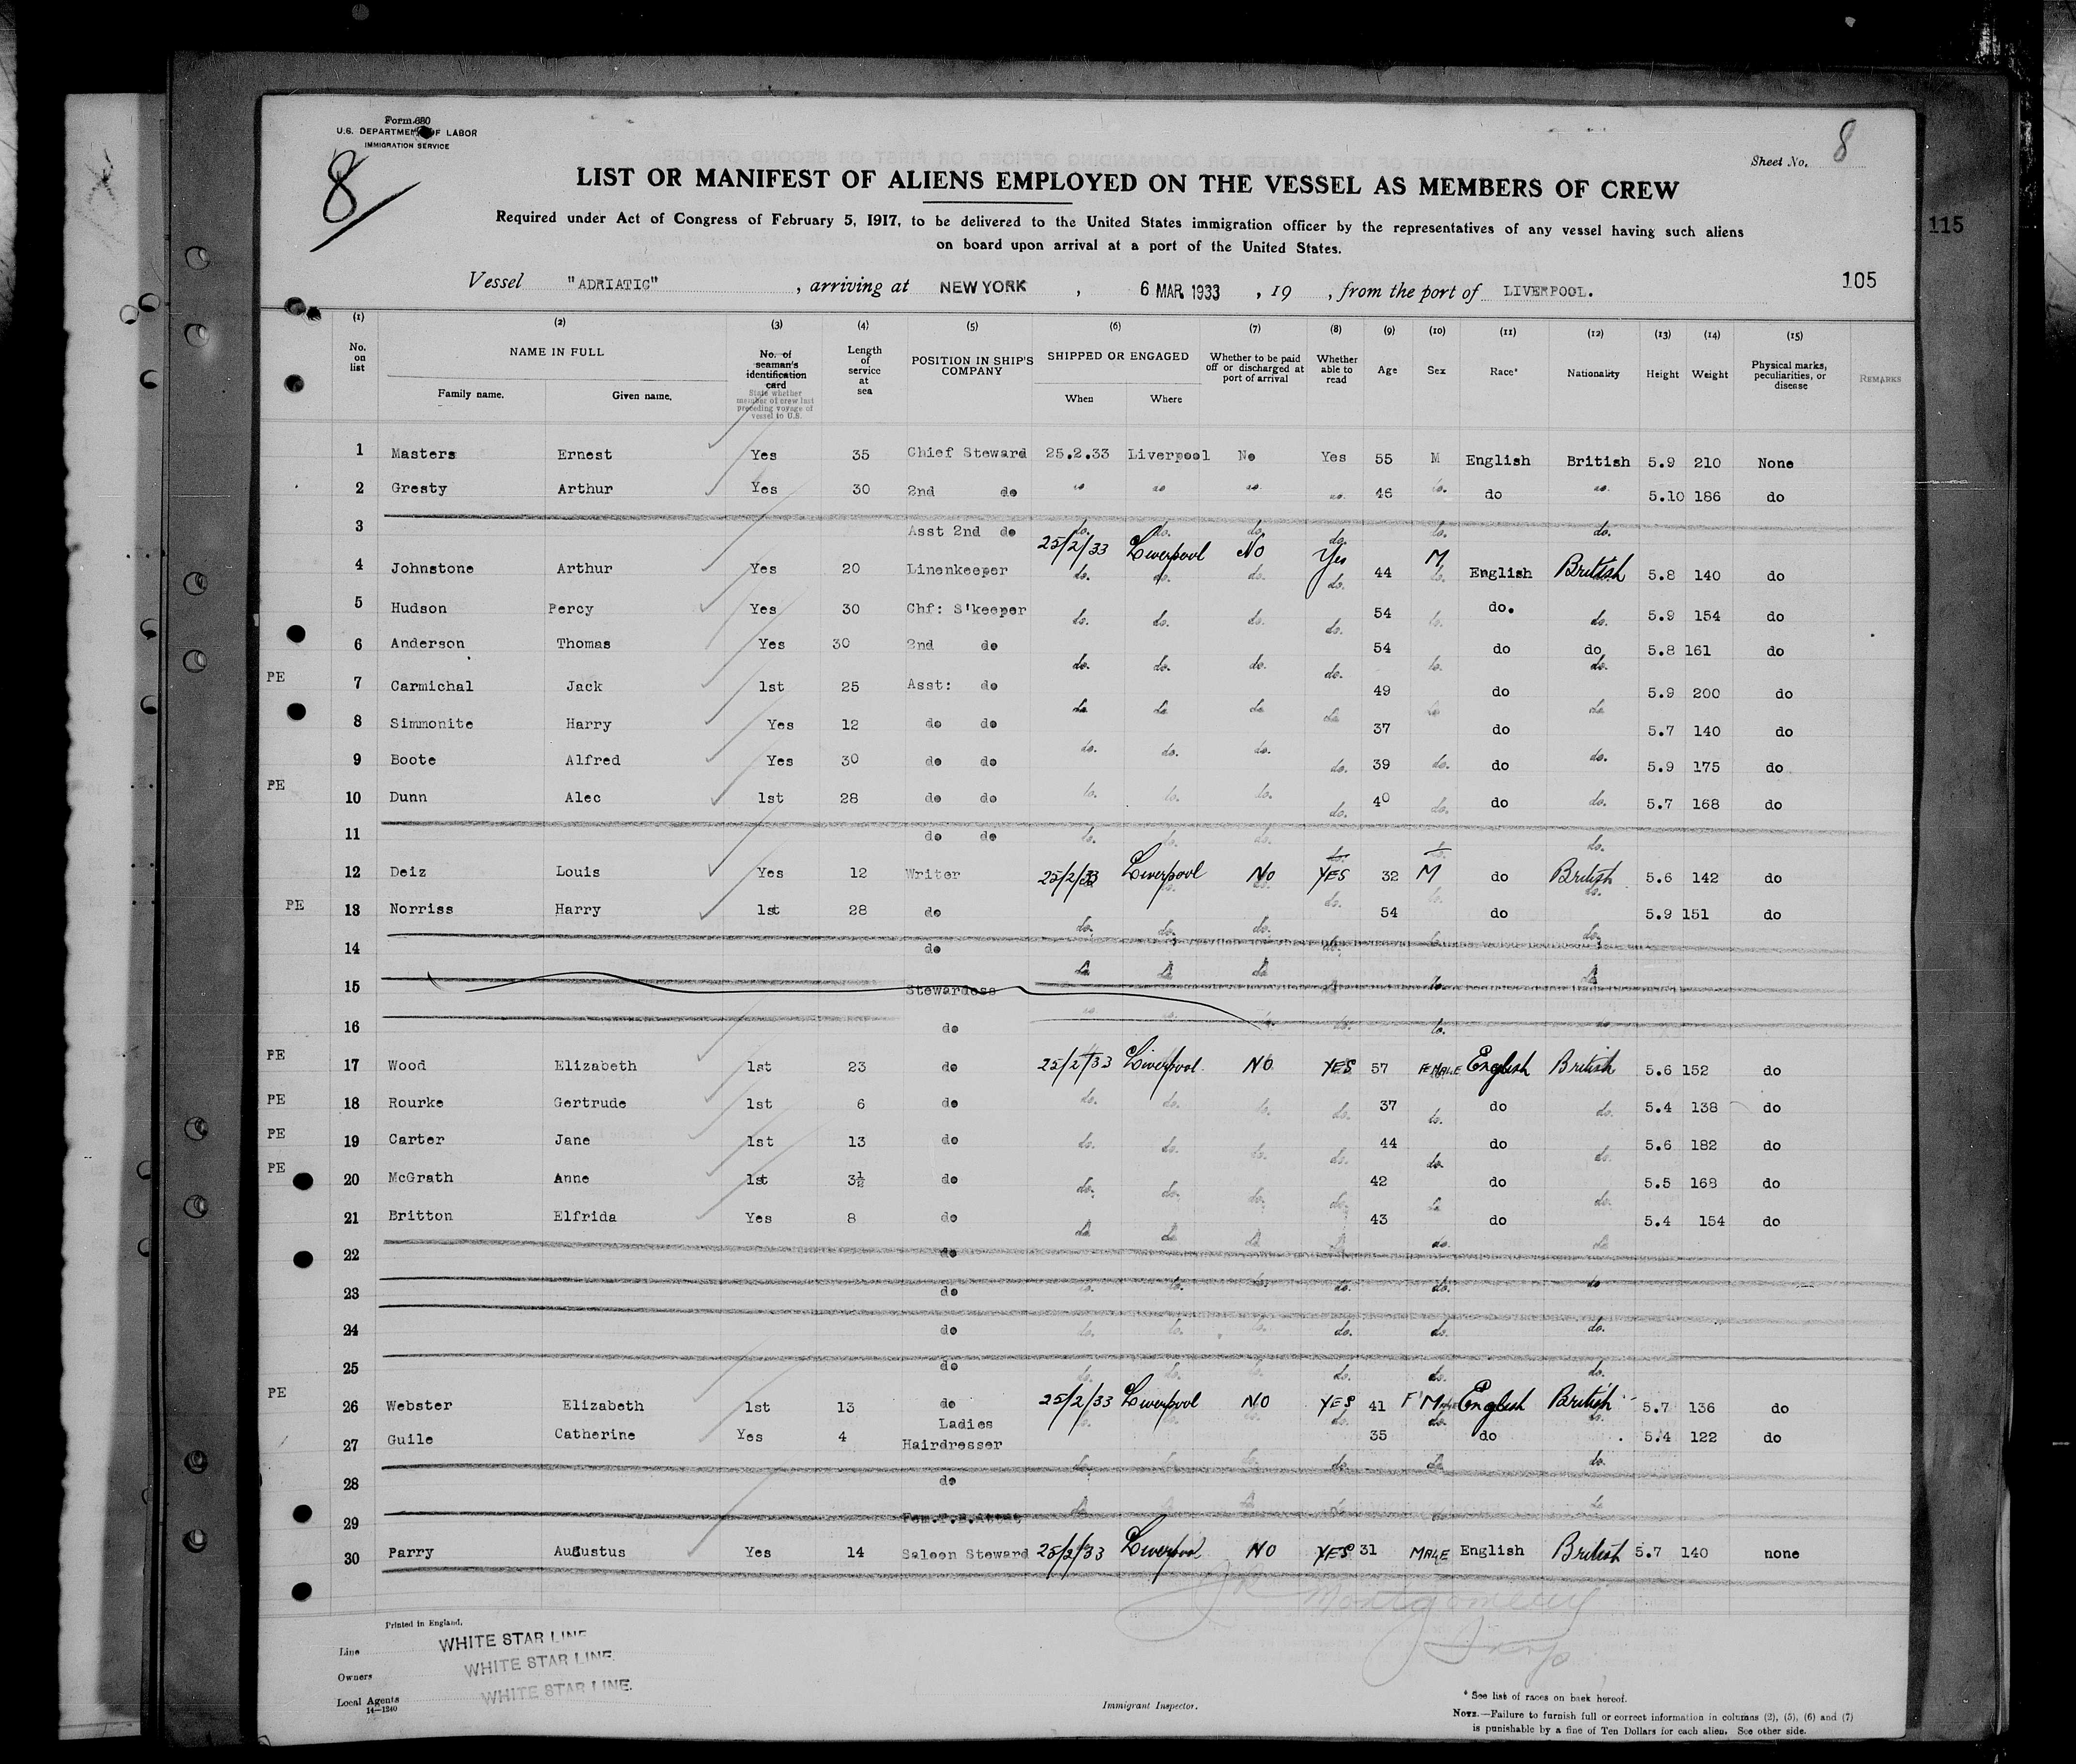 Form 680
U.S. DEPARTMENT OF LABOR
IMMIGRATION SERVICE
8
Sheet No. 8
LIST OR MANIFEST OF ALIENS EMPLOYED ON THE VESSEL AS MEMBERS OF CREW
Required under Act of Congress of February 5, 1917, to be delivered to the United States immigration officer by the representatives of any vessel having such aliens
on board upon arrival at a port of the United States.
115
Vessel "ADRIATIC", arriving at NEW YORK, 6 MAR 1933, 19 , from the port of LIVERPOOL.
105
(1) (2) (3) (4) (5) (6) (7) (8) (9) (10) (11) (12) (13) (14) (15)
No. on list NAME IN FULL Family name. Given name. No. of seaman's identification card State whether member of crew last preceding voyage of vessel to U.S. Length of service at sea POSITION IN SHIP'S COMPANY SHIPPED OR ENGAGED When Where Whether to be paid off or discharged at port of arrival Whether able to read Age Sex Race* Nationality Height Weight Physical marks, peculiarities, or disease REMARKS
1 Masters Ernest Yes 35 Chief Steward 25.2.33 Liverpool No Yes 55 M English British 5.9 210 None
2 Gresty Arthur Yes 30 2nd do do do do do 46 do do do 5.10 186 do
3 Asst 2nd do do. do. do. do. do. do.
4 Johnstone Arthur Yes 20 Linenkeeper 25/2/33 Liverpool No Yes 44 M English British 5.8 140 do
5 Hudson Percy Yes 30 Chf: S'keeper do. do. do. do. 54 do. do. do. 5.9 154 do
6 Anderson Thomas Yes 30 2nd do do. do. do. do. 54 do. do do 5.8 161 do
PE 7 Carmichal Jack 1st 25 Asst: do do do do do 49 do do do 5.9 200 do
8 Simmonite Harry Yes 12 do do do. do. do. do 37 do do do 5.7 140 do
9 Boote Alfred Yes 30 do do do. do. do. do. 39 do. do do. 5.9 175 do
PE 10 Dunn Alec 1st 28 do do do. do. do. do. 40 do. do do. 5.7 168 do
11 do do do. do. do. do.
12 Deiz Louis Yes 12 Writer 25/2/33 Liverpool No YES 32 M do British 5.6 142 do
PE 13 Norriss Harry 1st 28 do do. do. do. do. 54 do. do do. 5.9 151 do
14 do do. do. do. do. do. do.
15 Stewardess
16 do
PE 17 Wood Elizabeth 1st 23 do 25/2/33 Liverpool NO YES 57 FEMALE English British 5.6 152 do
PE 18 Rourke Gertrude 1st 6 do do. do. do. do. 37 do. do do. 5.4 138 do
PE 19 Carter Jane 1st 13 do do. do. do. do. 44 do. do do. 5.6 182 do
PE 20 McGrath Anne 1st 3½ do do. do. do. do. 42 do do do. 5.5 168 do
21 Britton Elfrida Yes 8 do do do do do 43 do. do do 5.4 154 do
22 do
23 do do. do. do. do. do. do
24 do do. do. do. do. do. do.
25 do do. do. do. do. do. do.
PE 26 Webster Elizabeth 1st 13 do 25/2/33 Liverpool NO YES 41 F'Male English British 5.7 136 do
27 Guile Catherine Yes 4 Ladies Hairdresser 35 do 5.4 122 do
28 do
29
30 Parry Augustus Yes 14 Saloon Steward 25/2/33 Liverpool NO YES 31 MALE English British 5.7 140 none
Montgomery
Printed in England.
Line WHITE STAR LINE
Owners WHITE STAR LINE.
Local Agents WHITE STAR LINE.
14—1240
Immigrant Inspector.
* See list of races on back hereof.
NOTE.—Failure to furnish full or correct information in columns (2), (5), (6) and (7)
is punishable by a fine of Ten Dollars for each alien. See other side.